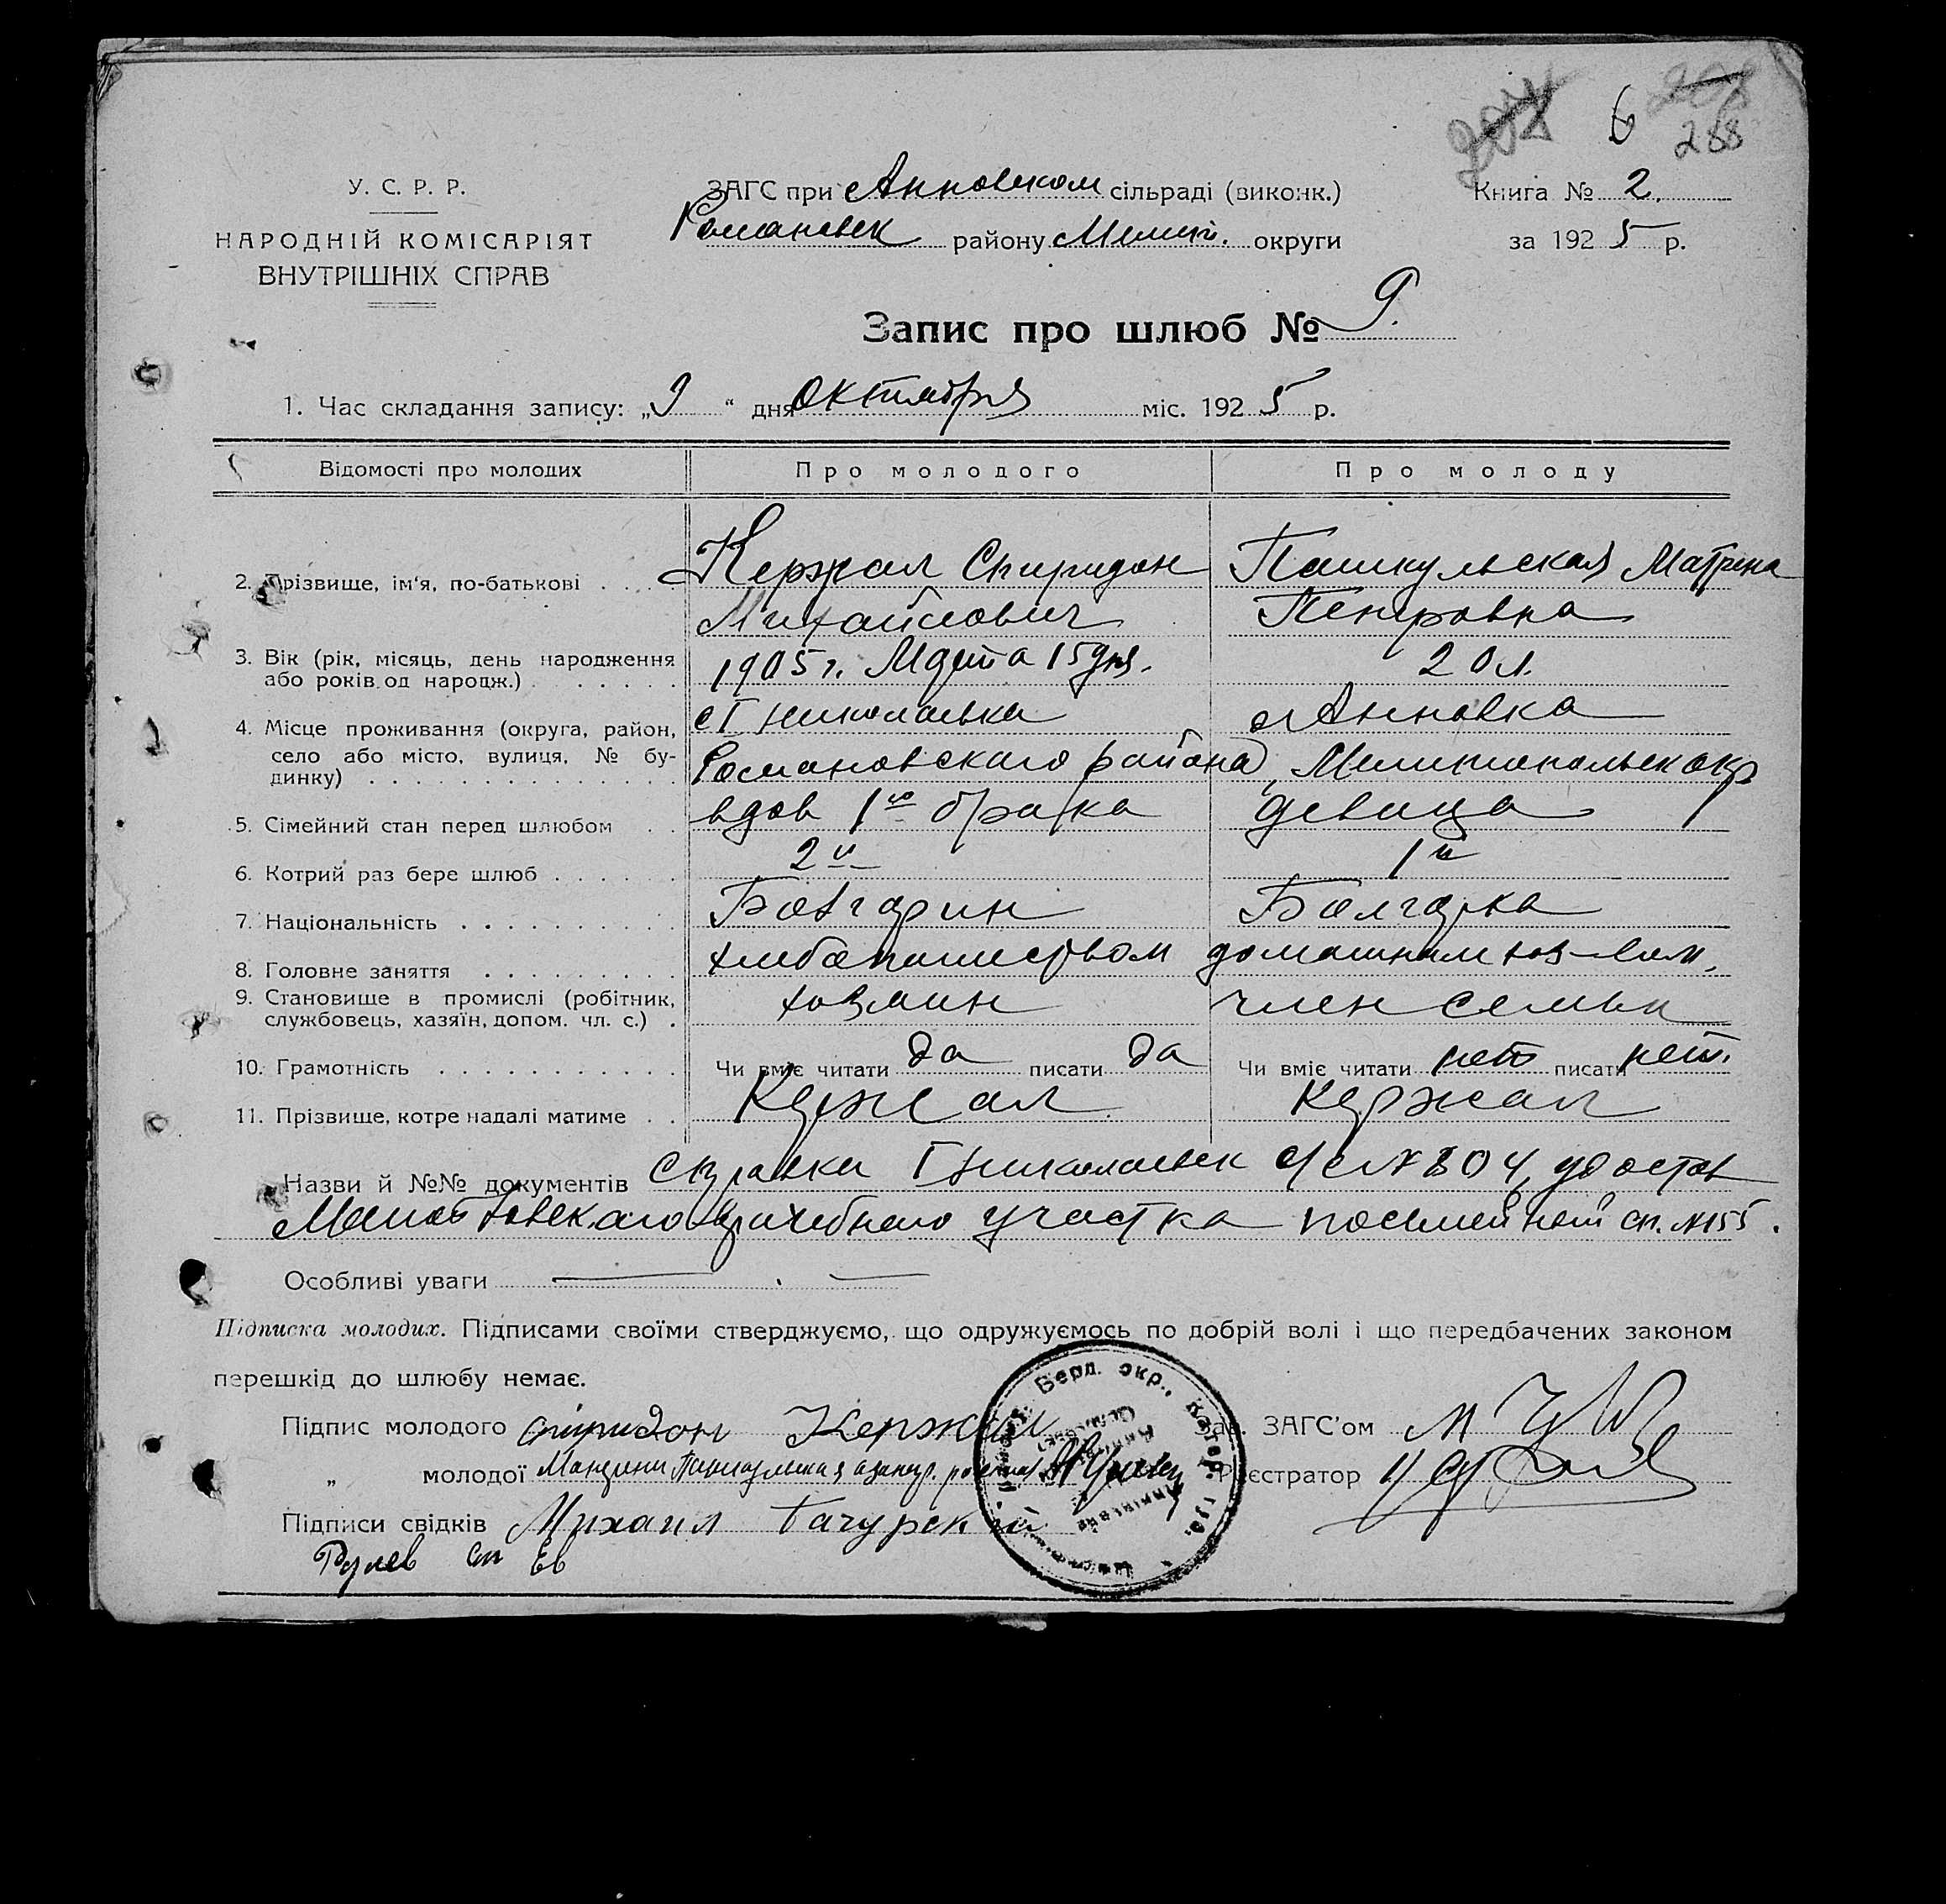 6
288
У. С. Р. Р.
НАРОДНІЙ КОМІСАРІЯТ
ВНУТРІШНІХ СПРАВ
ЗАГС при Анновском сільраді (виконк.)
Романовск району Мелит. округи
Книга № 2.
за 1925 р.
Запис про шлюб № 9.
1. Час складання запису: „9“ дня Октября міс. 1925 р.
Відомості про молодих Про молодого Про молоду
2. Прізвище, ім'я, по-батькові Кержал Спиридон Пашкульская Матрена
Михайлович Петровна
3. Вік (рік, місяць, день народження
або років од нарoдж.) 1905 г. Марта 15 дня. 20 л.
4. Місце проживання (округа, район, с Г николаевка с Анновка
село або місто, вулиця, № бу-
динку) Романовского района, Мелитопольск окр
5. Сімейний стан перед шлюбом вдов 1го брака девица
6. Котрий раз бере шлюб 2й 1й
7. Національність Болгарин Болгарка
8. Головне заняття хлебопашеством домашним хоз-вом.
9. Становище в промислі (робітник,
службовець, хазяїн, допом. чл. с.) хозяин член семьи
10. Грамотність Чи вміє читати да писати да Чи вміє читати нет писати нет.
11. Прізвище, котре надалі матиме Кержал Кержал
Назви й №№ документів справка Г николаевск с/с № 804, удостов
врачебного участка посемейной сп. № 155.
Особливі уваги
Підписка молодих. Підписами своїми стверджуємо, що одружуємось по добрій волі і що передбачених законом
перешкід до шлюбу немає.
Підпис молодого спиридон Кержал
„ молодої
Підписи свідків Михаил
Зав. ЗАГС'ом
Реєстратор
Берд. окр., Катер. губ.